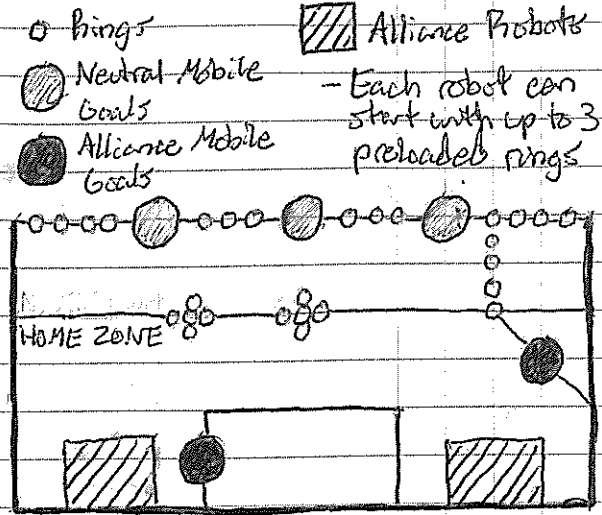 Rings
Neutral Mobile
Goals
Alliance Mobile
Goals
Alliance Robots
- Each robot can
start with up to 3
preloaded rings
HOME ZONE